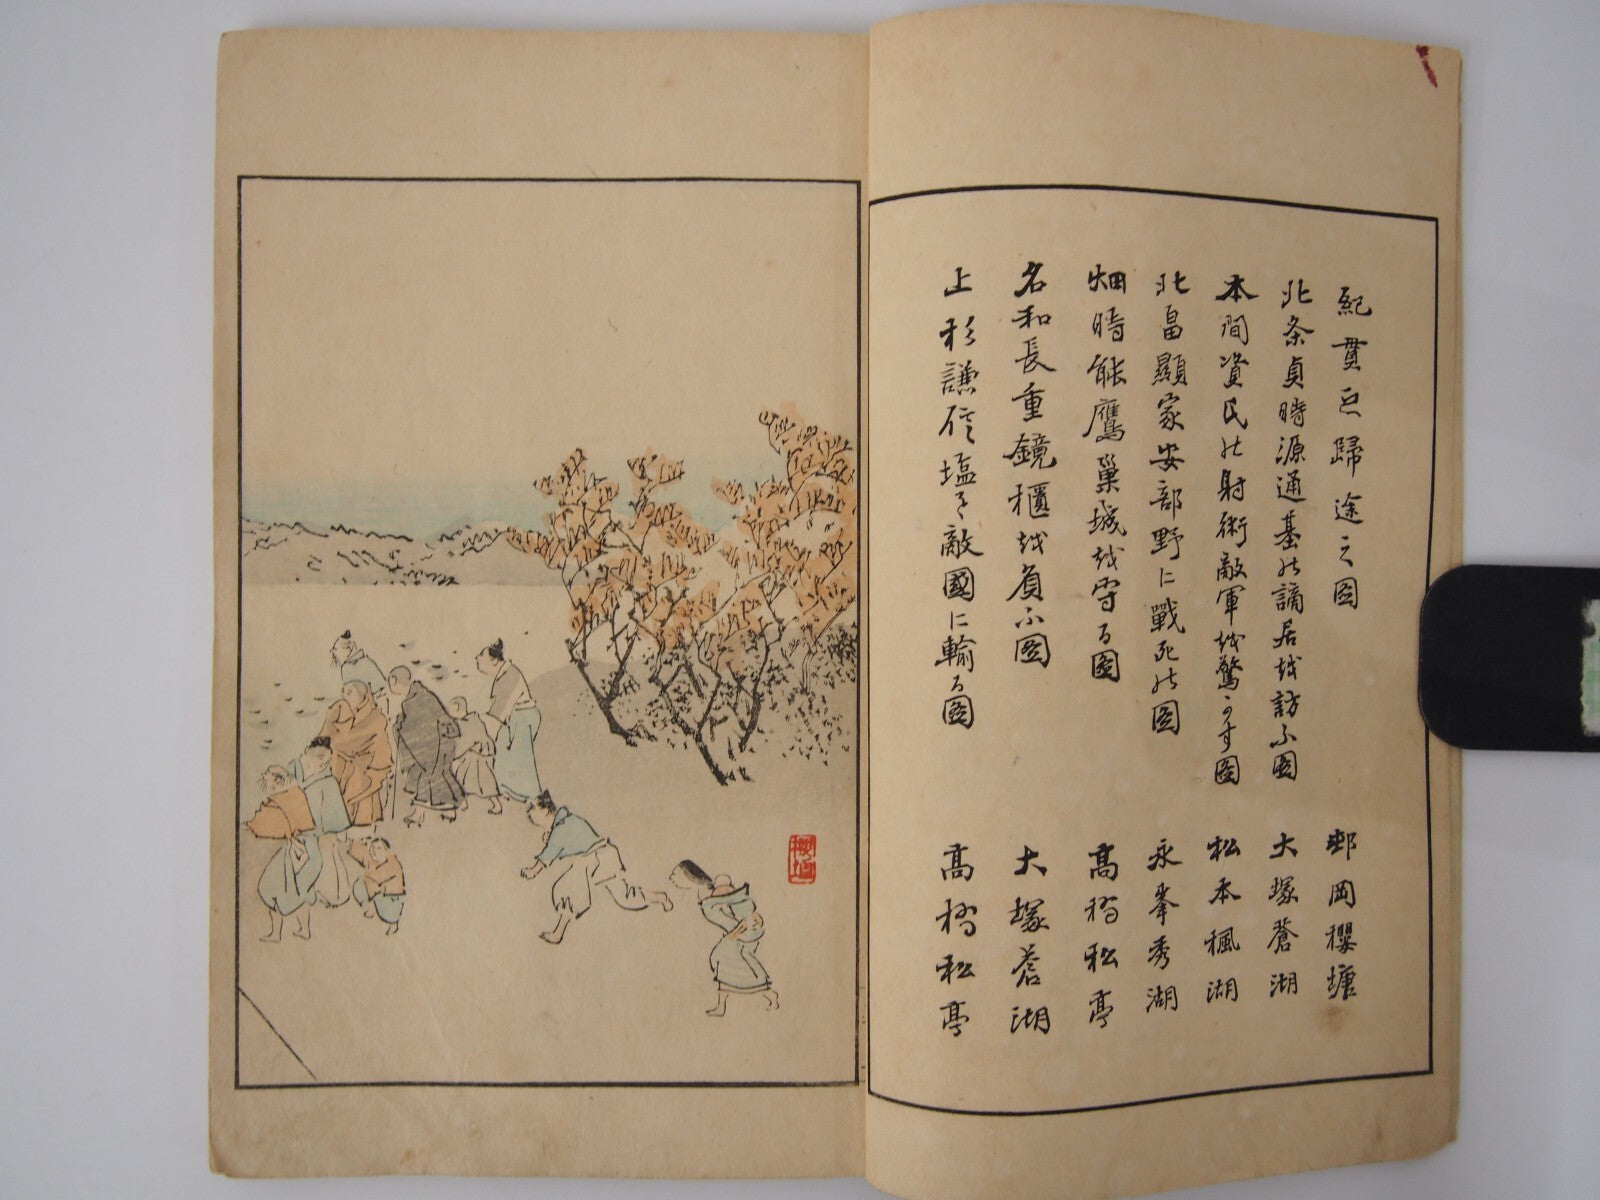 紀貫之歸途之圖 邨岡櫻塘
北条貞時源通基の謫居越訪ふ圖 大塚蒼湖
本間資氏の射術敵軍越驚かす圖 松本楓湖
北畠顯家安部野に戰死の圖 永峯秀湖
畑時能鷹巢城越守る圖 髙橋松亭
名和長重鏡櫃越負ふ圖 大塚蒼湖
上杉謙信塩を敵國に輸る圖 髙橋松亭
櫻塘